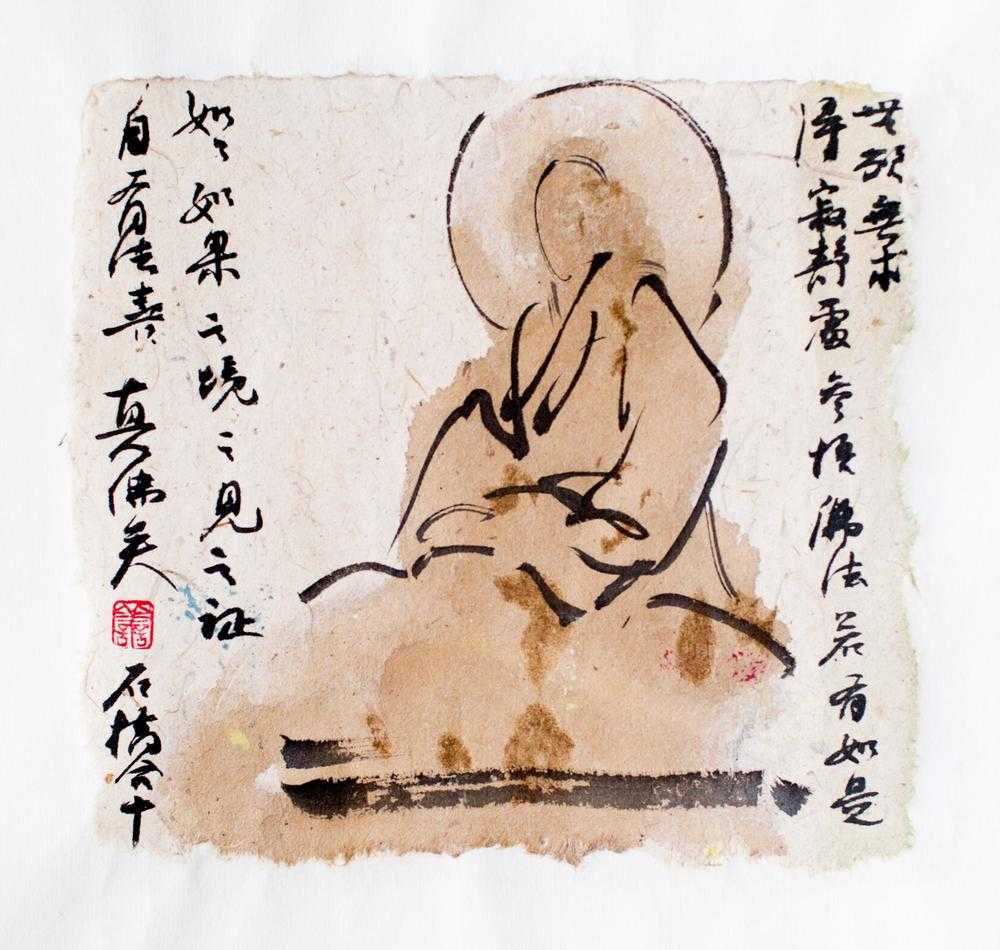 無欲無求
得寂靜處參悟佛法若有如是
如〻如果之境之見之证
自有法喜真佛矣
石橋合十